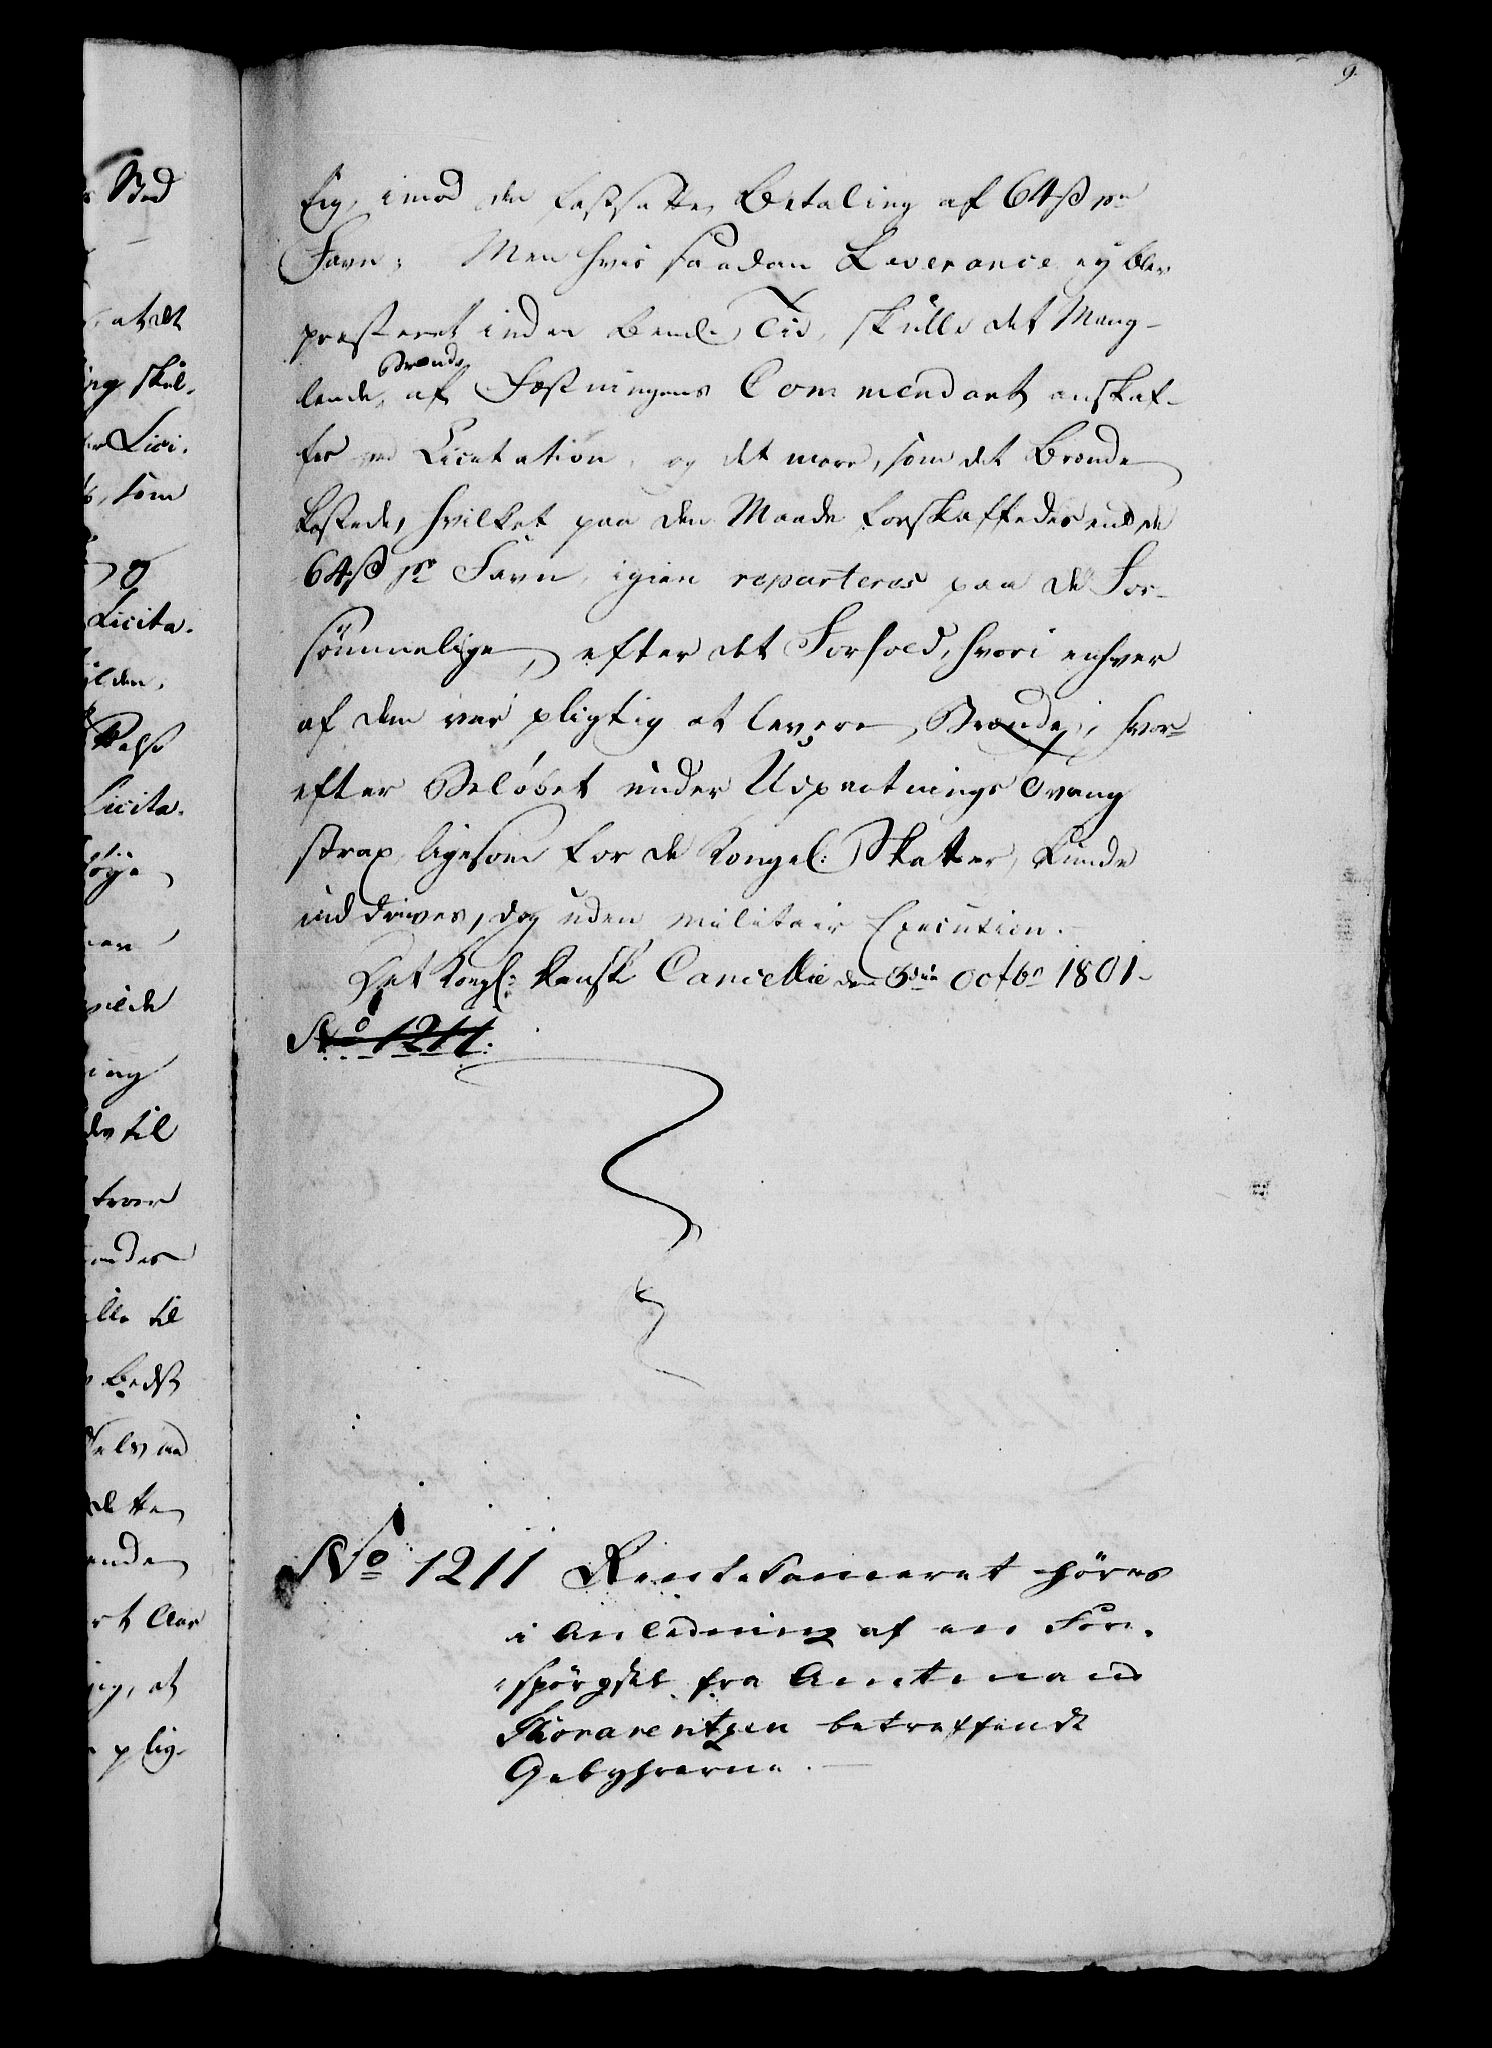 9.
tig, imod den fastsatte Betaling af 64 ß pr
Favn; Men hvis saadan Leverance ey blev
præsteret inden bemte Tid, skulle det Mang-
lende Brænde af Fæstningens Commendant anskaf-
fes ved Licitation, og det mere, som det Brænde
kostede, hvilket paa den Maade forskaffedes end de
64 ß pr Favn, igien reparteres paa de For-
sömmelige, efter det Forhold, hvori enhver
af dem var pligtig at levere Brænde; hvor-
efter Belöbet under Udpantnings Tvang
strax, ligesom for de Kongel: Skatter, kunde
inddrives, dog uden militair Execution.
Det Kongl: Danske Cancellie den 3die Octbr 1801.
No 1211.
No 1211 Rentekameret höres
i Anledning af en For-
spörgsel fra Amtmand
Thorarentzen betreffende
Gebyhrerne.